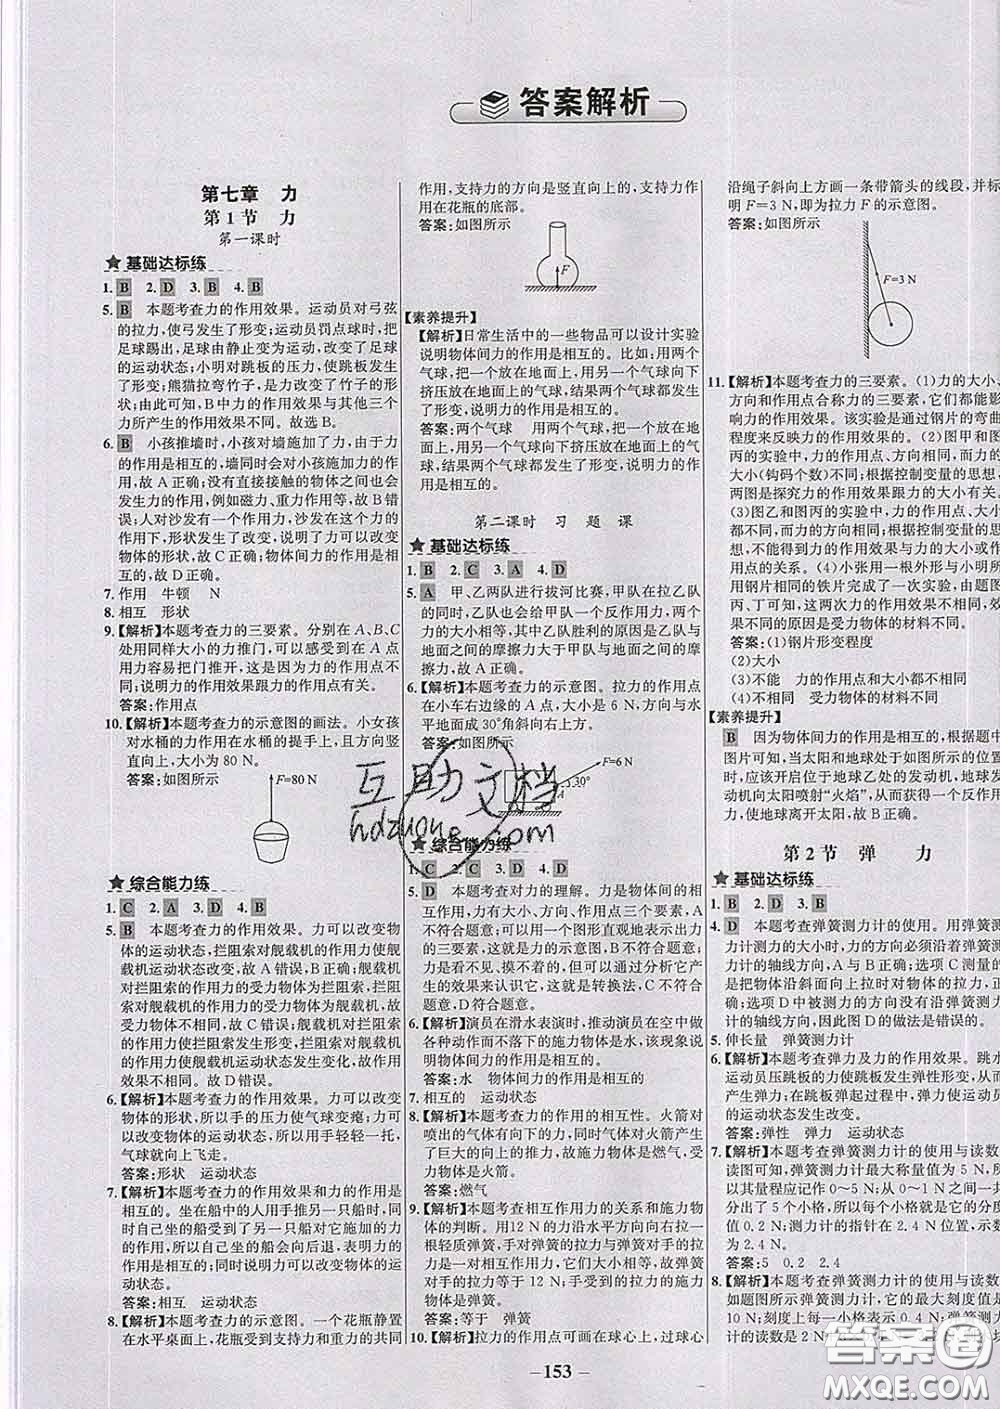 答案解析
第七章 力
第1节 力
第一课时
基础达标练
1. B 2. D 3. B 4. B
5. B 本题考查力的作用效果。运动员对弓弦
的拉力,使弓发生了形变;运动员罚点球时,把
足球踢出,足球由静止变为运动,改变了足球
的运动状态;小明对跳板的压力,使跳板发生
了形变;熊猫拉弯竹子,是力改变了竹子的形
状。由此可知,B中力的作用效果与其他三个
力所产生的作用效果不同。故选B。
6. B 小孩推墙时,小孩对墙施加了力,由于力
的作用是相互的,墙同时会对小孩施加力的作
用,故A正确;没有直接接触的物体之间也会
发生力的作用,例如磁力、重力作用等,故B错
误;人对沙发有一个作用力,沙发在这个力的
作用下,形状发生了变化,所以力可以改变
物体的形状,故C正确;物体间力的作用是相
互的,故D正确。
7. 作用 牛顿 N
8. 相互 形状
9.【解析】本题考查力的三要素。分别在A、B、C
处用同样大小的力推门,可以感受到在A点
用力容易把门推开,这是力的作用点不
同;说明力的作用效果跟力的作用点有关。
答案:作用点
10.【解析】本题考查力的示意图的画法。小女孩
对水桶的力作用在水桶的提手上,且方向竖
直向上,大小为80 N。
答案:如图所示
F=80 N
综合能力练
1. C 2. A 3. D 4. B
5. B 本题考查力的作用效果。力可以改变物
体的运动状态,拦阻索对舰载机的力使舰
载机运动状态改变,故A错误,B正确;舰载机
对拦阻索的作用力的受力物体为拦阻索,拦阻
索对舰载机的作用力的受力物体为舰载机,故
C错误;舰载机的力对拦阻索
的力使拦阻索发生形变,拦阻索对舰载机的
力使舰载机运动状态发生变化,故作用
效果不同。故D错误。
6.【解析】本题考查力的作用效果。力可以改变
物体的形状,所以手的压力使气球变瘪;力可
以改变物体的运动状态,所以用手轻轻一托,
气球就向上飞走。
答案:形状 运动状态
7.【解析】本题考查力的作用效果和力的作用是
相互的。坐在船中的人用手推另一只船时,同
时自己坐的船受到了另一只船对它施加的力
的作用,所以自己坐的船会向后退,表明力的
作用是相互的,也表明力的作用可以改变物体的运
动状态。
答案:相互 运动状态
8.【解析】本题考查力的示意图。一个花瓶静置
在水平桌面上,花瓶受到支持力和重力的共同
作用,支持力的方向是竖直向上的,支持力作
用在花瓶的底部。
答案:如图所示
F
【素养提升】
【解析】日常生活中的一些物品可以设计实验
说明物体间力的作用是相互的。比如:用两个
气球,把一个放在地面上,用另一个气球向下
挤压放在地面上的气球,结果两个气球都发生
了形变,说明力的作用是相互的。
答案:两个气球 用两个气球,把一个放在地
面上,用另一个气球向下挤压放在地面上的气
球,结果两个气球同时发生了形变。
第二课时 习题课
基础达标练
1. B 2. C 3. A 4. D
5. A 甲、乙两队进行拔河比赛,甲队在拉乙队
的同时,乙队也会给甲队一个反作用力,两力
的大小相等,其中乙队胜利的原因是乙队与
地面之间的摩擦力大于甲队与地面之间的摩
擦力,故A正确。
6.【解析】本题考查力的示意图。拉力的作用点
在小车右边缘的A点,大小是6 N,方向与水
平地面成30°角斜向右上方。
答案:如图所示
F=6 N
30°
A
综合能力练
1. C 2. C 3. D 4. D
5. D 本题考查对力的理解。力是物体间的相
互作用,力有大小、方向、作用点三个要素,A不
符合题意;用一个图形直观地表示出力
的三要素,这就是力的示意图,B不符合题意;力
是看不见、摸不着的,但可以通过分析它产
生的效果来认识它,这就是转换法,C不
符合题意,D符合题意。
6.【解析】演员在滑水表演时,推动演员在空中做
各种动作而不落下的施力物体是水,该现象说
明物体间力的作用是相互的。
答案:水 物体间力的作用是相互的
7. 相互的 运动状态
8.【解析】本题考查力的作用的相互性。火箭对
喷出的气体有向下的力,同时气体对火箭产生
了巨大的向上的推力,故施力物体是燃气,
受力物体是火箭。
答案:燃气
9.【解析】本题考查相互作用力的关系和施力物
体的判断。用12 N的力沿水平方向向右拉一
根轻质弹簧,手与弹簧的拉力与弹簧对手的拉力
是一对相互作用力,其大小相等。故弹簧
对手的拉力等于12 N;手受到的拉力的施力
物体是弹簧。
答案:等于 弹簧
10.【解析】拉力的作用点可画在球心上,过球心
沿绳子斜向上方画一条带箭头的线段,并标
明F=3 N,即为拉力F的示意图。
答案:如图所示
F=3 N
11.【解析】本题考查力的三要素。(1)力的大小、
方向和作用点合称力的三要素,它们都能影
响力的作用效果。该实验是通过钢片的弯曲
程度来反映力的作用效果的。(2)图甲和图
丙的实验中,力的作用点、方向相同,而力的
大小(钩码个数)不同;根据控制变量的思想,
两图是探究力的作用效果与力的大小有关。
(3)图乙和图丙的实验中,力的作用点和大小
都不同,而力的方向相同;根据控制变量的思
想,不能得出力的作用效果与力的大小或作
用点的关系。(4)小张用一根外形与小明所
用钢片相同的铁片完成了一次实验,由题图
丙、丁可知,力的作用效果不相同,这是
受力物体的材料不同。
答案:(1)钢片形变程度
(2)大小
(3)不能 力的作用点和大小都不相同
(4)不相同 受力物体的材料不同
【素养提升】
B 因为物体间力的作用是相互的,根据题中
图片可知,当太阳和地球处于如图所示的位置
时,应该开启位于地球乙处的发动机,地球发
动机向太阳喷射“火焰”,会获得一个反作用力
使地球离开太阳,故B正确。
第2节 弹力
基础达标练
1. B 2. D 3. B
4. D 本题考查弹簧测力计的使用。用弹簧
测力计测力的大小时,力的方向必须沿着弹簧测
力计的轴线方向,A与B正确;选项C测量的
是把物体沿斜面向上拉时对物体的拉力,正
确;选项D中被测力的方向没有沿弹簧测力
计的轴线方向,因此图D的做法是错误的。
5. 伸长量 弹簧测力计
6.【解析】本题考查弹力及力的作用效果。跳水
运动员压跳板的力使跳板发生弹性形变,从而
产生弹力;在跳板弹起过程中,力使运动员
的运动状态发生改变。
答案:弹性 弹力 运动状态
7.【解析】本题考查弹簧测力计的使用与读数。
读图可知,弹簧测力计最大称量值为5 N,所
以其量程应记作0~5 N;从0~1 N,一共
分出了5个小格,所以每个小格代表的分度
值0.2 N;测力计的指针在2.4 N位置,示数
是2.4 N。
答案:5 0.2 2.4
8.【解析】本题考查弹簧测力计的使用与读数。
如题图所示,该弹簧测力计的量程是
10 N;刻度上每一小格表示0.4 N;弹簧测力
计的读数是2 N
153
互助文档
hdzuone.com
答案圈
MXQE.COM